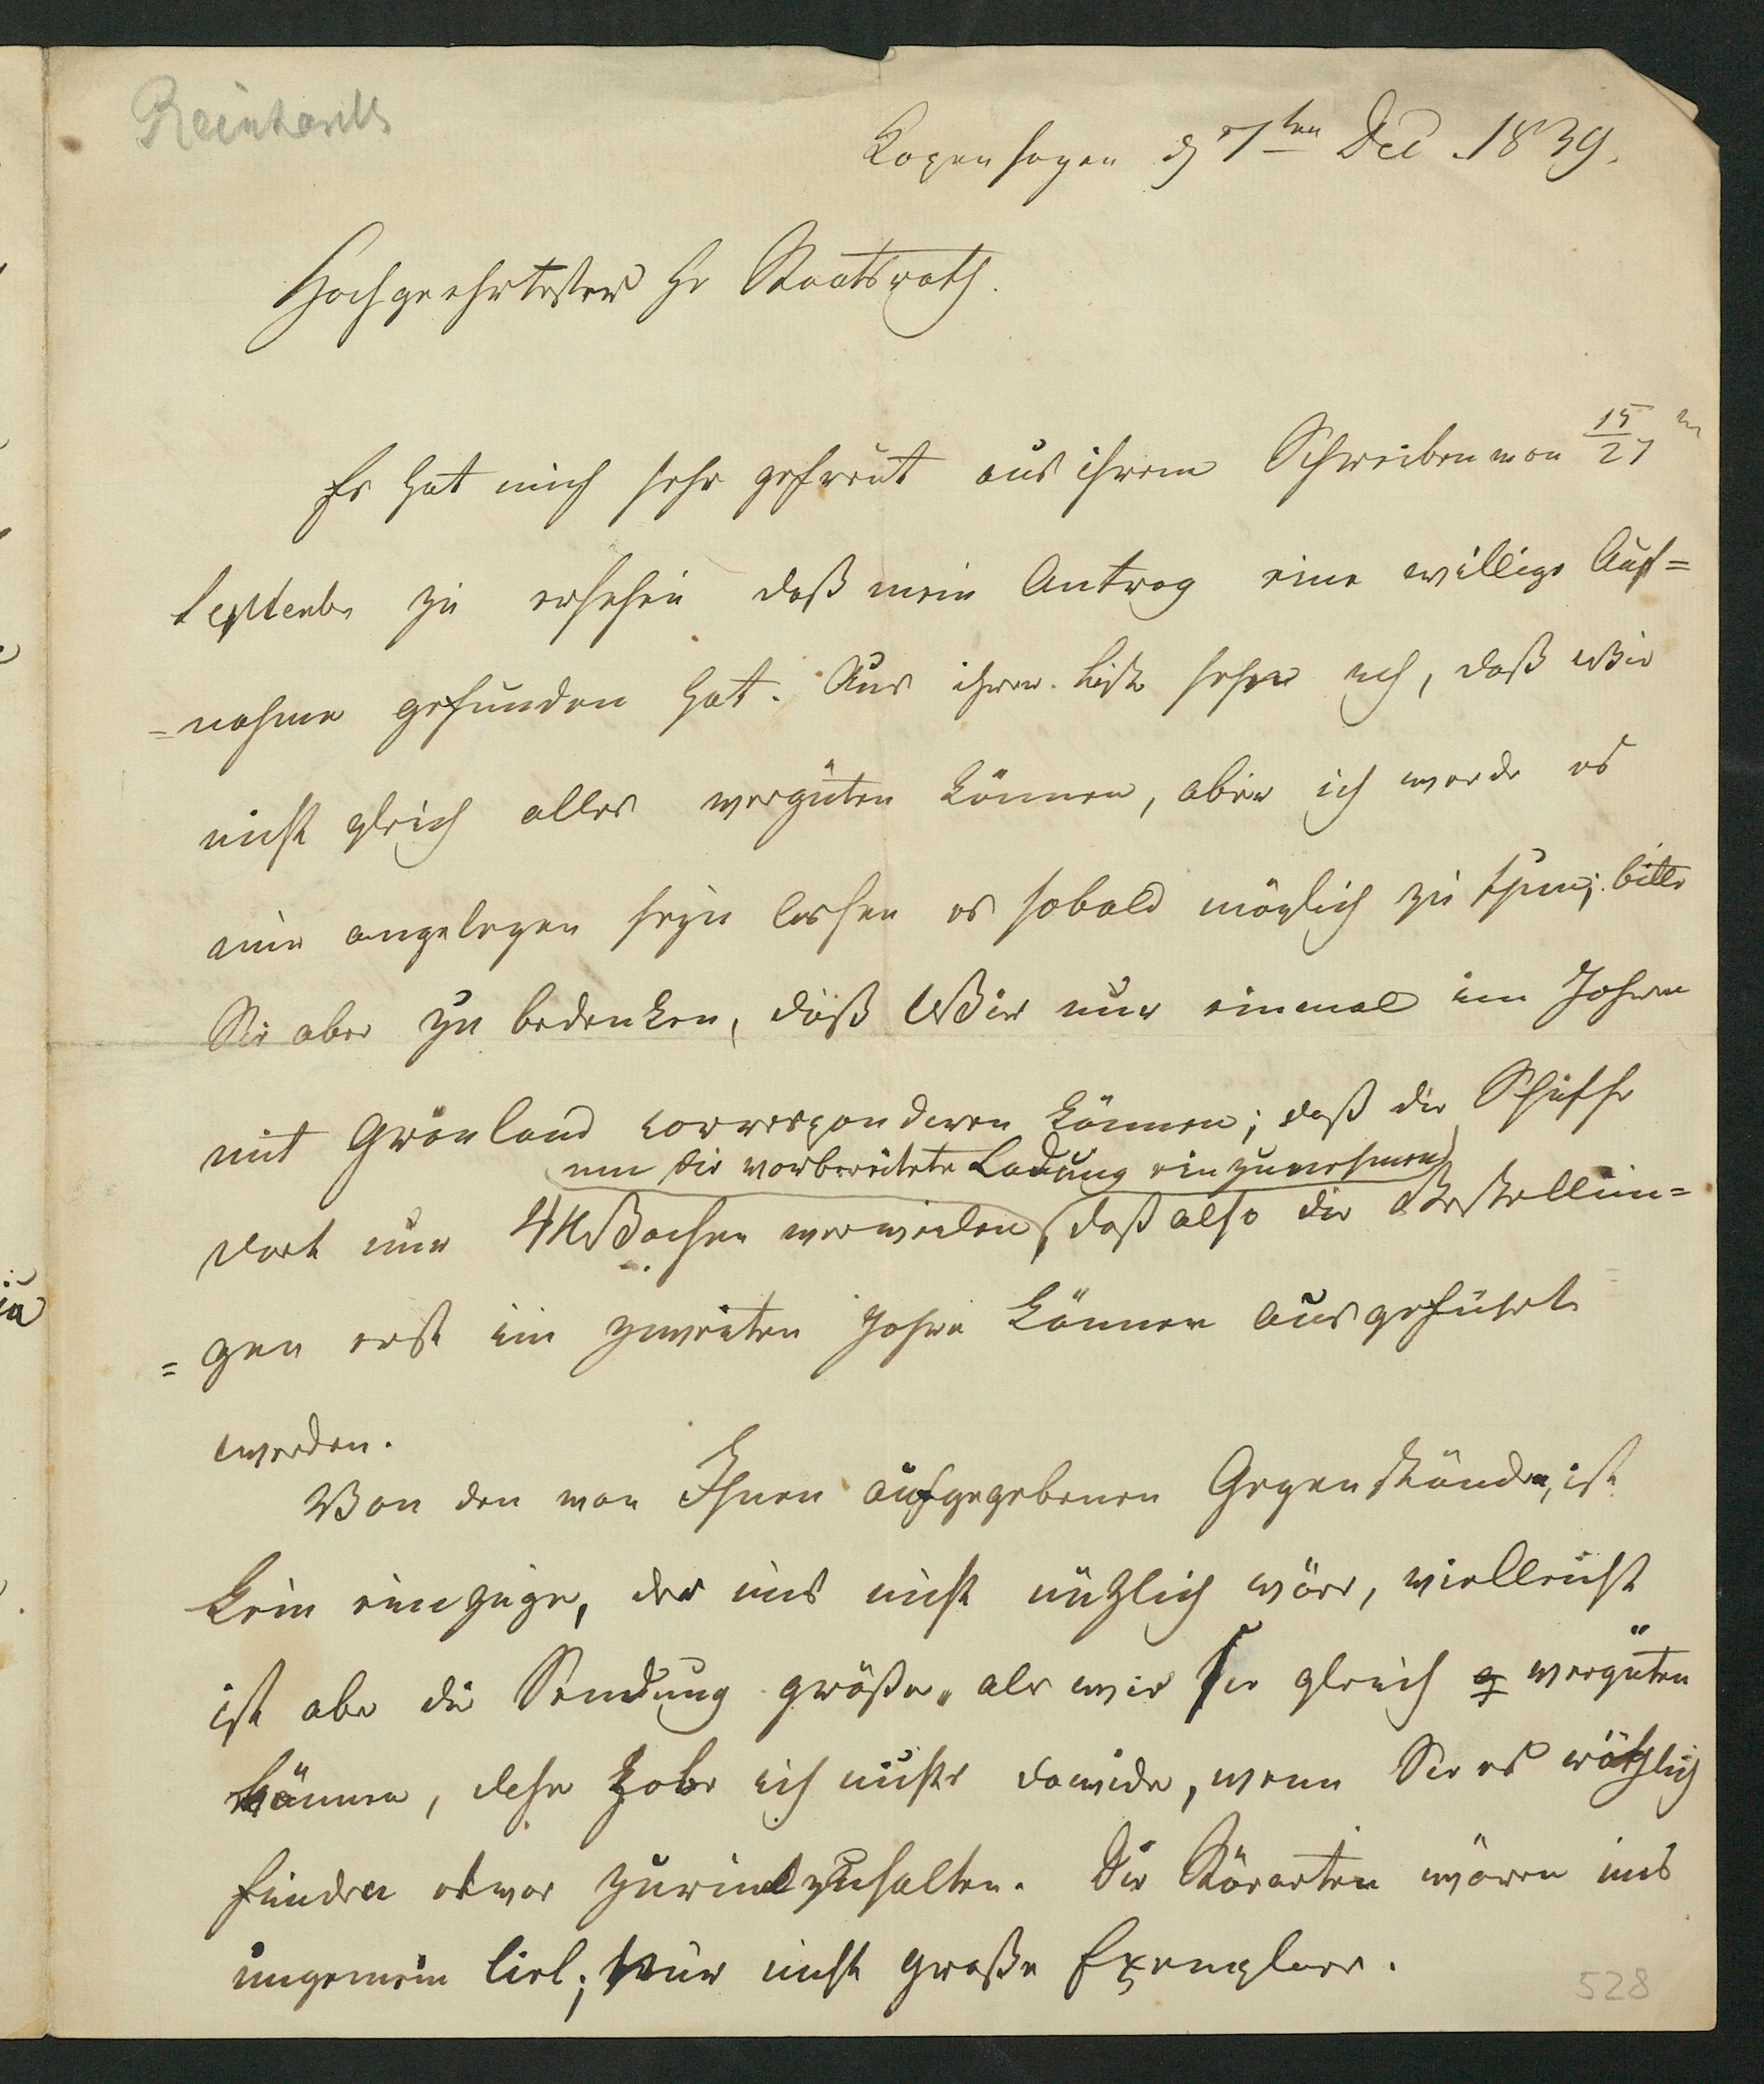 Reinhardt
Kopenhagen d 7ten Dec. 1839.
Hochgeehrtester Hr Staatsrath.
Es hat mich sehr gefreut aus ihrem Schreiben von 15/27
September zu ersehen daß mein Antrag eine willige Auf=
=nahme gefunden hat. Aus ihrer Liste sehe ich, daß wir
nicht gleich alles vergüten können, aber ich werde es
mir angelegen seyn lassen es sobald möglich zu thun; bitte
Sie aber zu bedenken, daß Wir nur einmal im Jahre
mit Grönland correspondiren können; daß die Schiffe
um die vorbereitete Ladung einzunehmen
dort nur 4 Wochen verweilen, daß also die Bestellun=
=gen erst im zweiten Jahre können ausgeführt
werden.
Von den von Ihnen aufgegebenen Gegenständen, ist
kein einzige, der uns nicht nützlich wäre, vielleicht
ist aber die Sendung größer als wir sie gleich vergüten
können, habe ich nichts dawider, wenn Sie es räthlich
finden etwas zurückzuhalten. Die Störarten wären uns
ungemein lieb; Nur nicht große Exemplare.
528